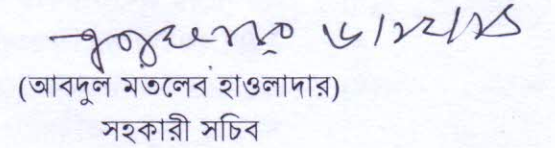 ৬/১২/১৯
(আবদুল মতলেব হাওলাদার)
সহকারী সচিব